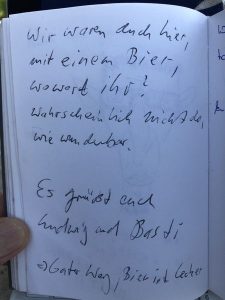 Wir waren auch hier,
mit einem Bier,
wo wart ihr?
wahrscheinlich nicht da,
wie wunderbar.
Es grüßt euch
Ludwig und Basti
→ Guter Weg, Bier ist lecker